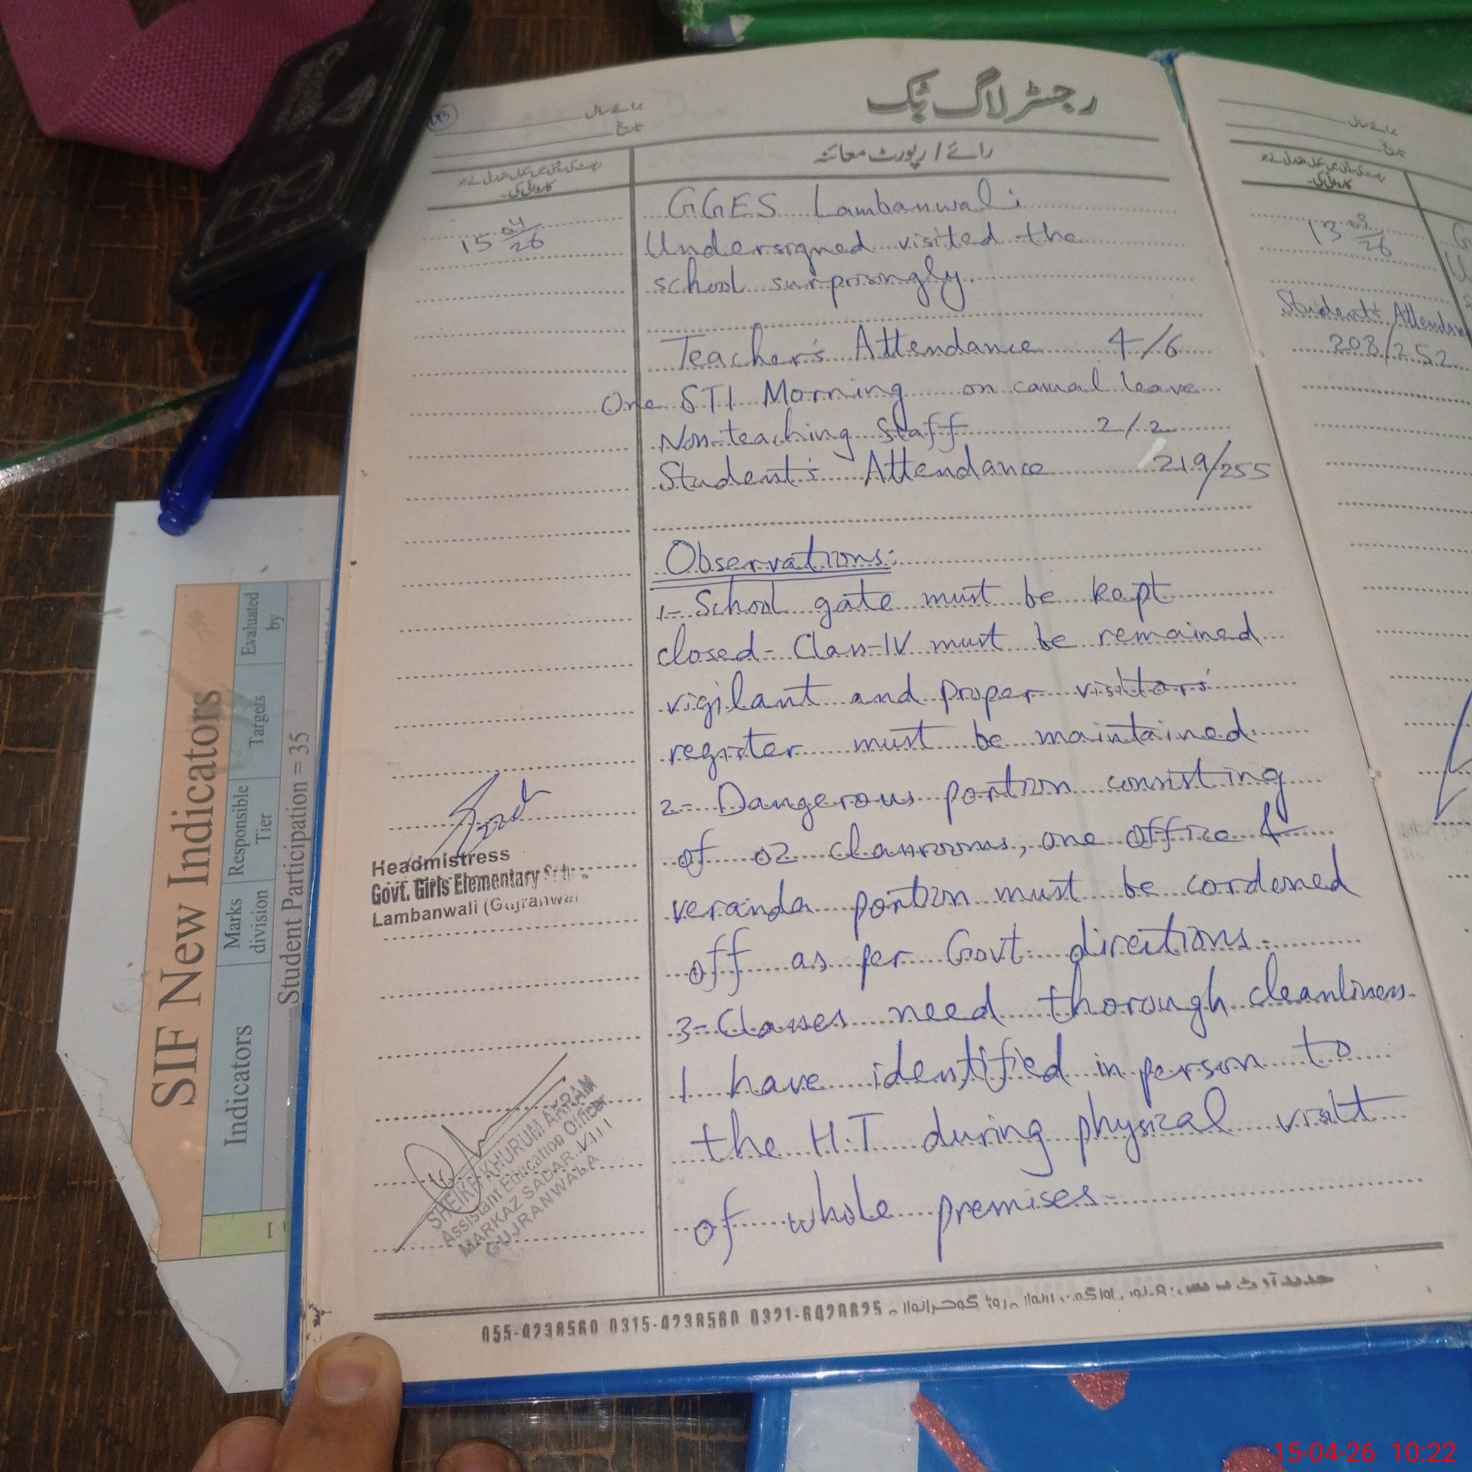 رجسٹر لاگ بک
رائے / رپورٹ معائنہ
15 04/26
GGES Lambanwali
Undersigned visited the
school surprisingly.
Teacher's Attendance 4/6
One STI Morning on casual leave
Non-teaching Staff 2/2
Student's Attendance 219/255
Observations:
1- School gate must be kept
closed- Class-IV must be remained
vigilant and proper visitors'
register must be maintained.
2- Dangerous portion consisting
of 02 classrooms, one office &
veranda portion must be cordened
off as per Govt. directions.
3- Classes need thorough cleanliness.
I have identified in person to
the H.T during physical visit
of whole premises-
Headmistress
Govt. Girls Elementary
Lambanwali (Gujranwal
SHEIKH KHURUM AKRAM
Assistant Education Officer
MARKAZ SADAR-VIII
GUJRANWALA
055-4238560 0315-4238560
13
26
Student's Attendan
203/252
SIF New Indicators
Indicators
Marks division
Responsible Tier
Targets
Evaluated by
Student Participation = 35
1
15-04-26 10:22